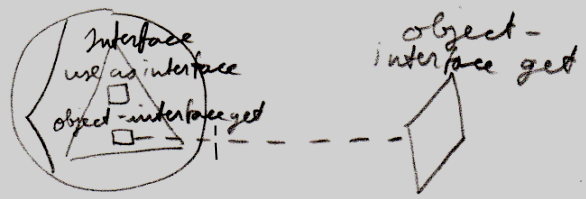 Interface
use as interface
object-interface get
object-
interface get